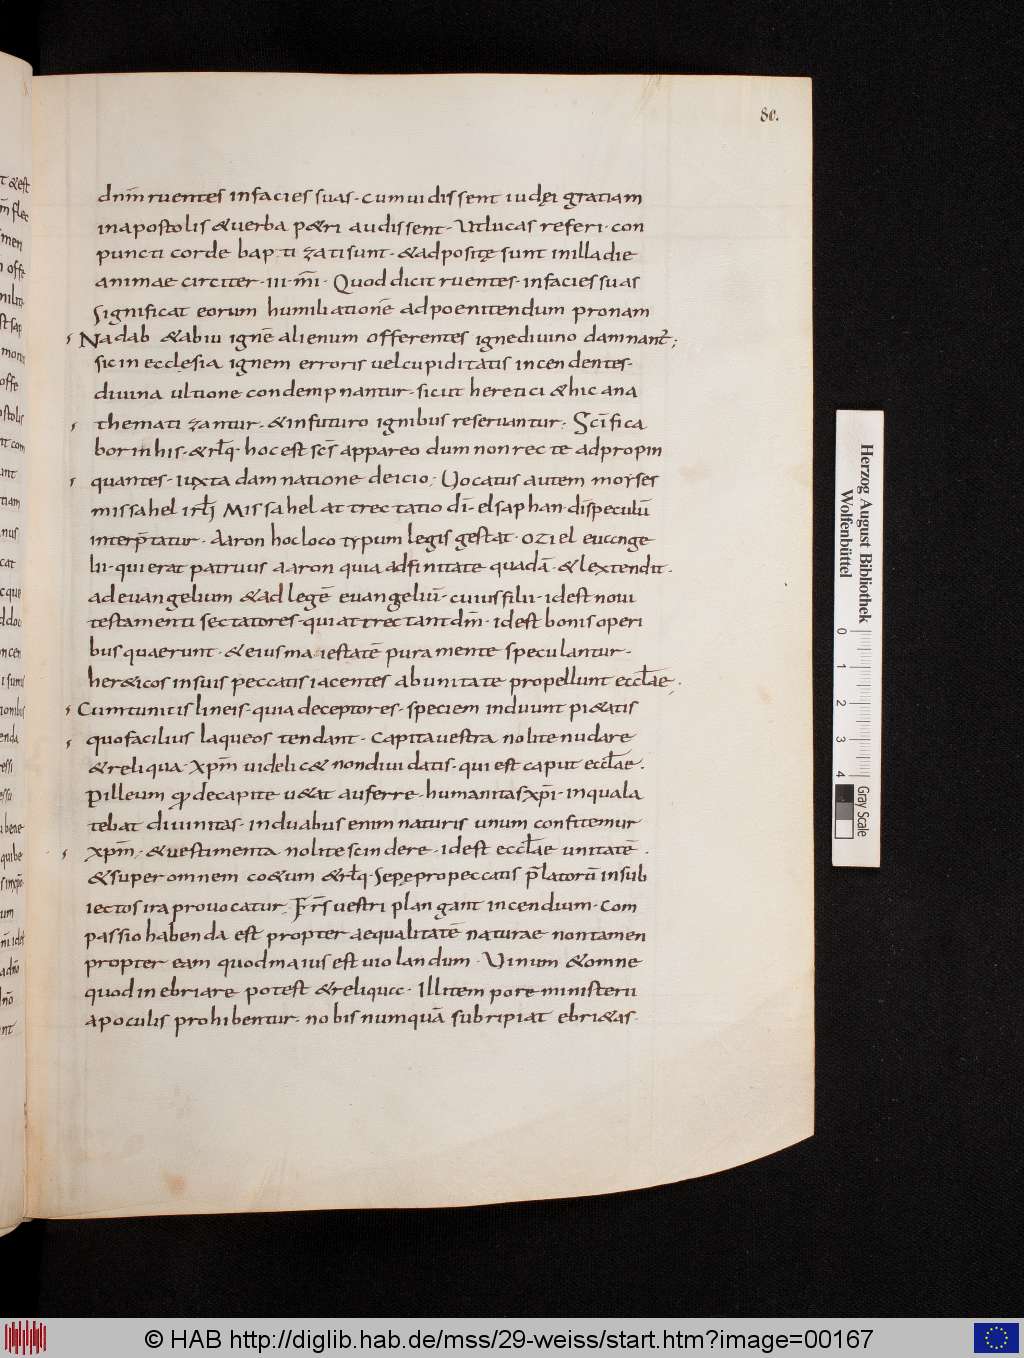 80.
dnm̄ ruentes infacies suas. cum uidissent iudęi gratiam
inapostolis &uerba p&ri audissent. Utlucas referi. con
puncti corde bapti zati sunt. &adpositę sunt inilladie
animae circiter. iii. m̄i. Quod dicit ruentes. infacies suas
Significat eorum humiliationē adpoenitendum pronam
Nadab &abiu ignē alienum offerentes ignediuino damnant᷑;
sic in ecclesia ignem erroris uelcupiditatis incendentes.
diuina ultione condempnantur. sicut heretici &hic ana
themati zantur. &infuturo ignibus reseruantur; Sc̄ifica
bor in his. &rłq. hoc est scs̄ appareo dum non recte adpropin
quantes. iuxta damnatione deicio; Uocatus autem moyses
missahel irł Missahel attrectatio dī. elsaphan. dīspeculū
interp̄tatur. Aaron hocloco typum legis gestat. oziel euange
lii. qui erat patruus aaron quia adfinitate quadā. &lextendit.
ad euangelium &ad legē euangeliū. cuius filii. idest noui
testamenti sectatores. qui attrectant dm̄. idest bonis operi
bus quaerunt. &eius maiestatē pura mente speculantur.
her&icos insuis peccatis iacentes abunitate propellunt eccłae;.
Cumtunicis lineis. quia deceptores. speciem induunt pi&atis
quofacilius laqueos tendant. Capita uestra nolite nudare
&reliqua. xpm̄ uidelic& nondiuidatis. qui est caput eccłae.
Pilleum ꝙ decapite u&at auferre. humanitas xp̄i. inquala
tebat diuinitas. induabus enim naturis unum confitemur
xpm̄; &uestimenta nolite scindere. idest eccłae unitatē.
&super omnem co&um &rłq. Sepę propeccatis p̄latorū insub
iectos ira prouocatur. Fr̄s uestri plangant incendium. Com
passio habenda est propter aequalitatē naturae nontamen
propter eam quod maius est uiolandum. Uinum &omne
quod inebriare potest &reliqua. Illitempore ministerii
apoculis prohibentur. nobis numquā subripiat ebri&as.
Herzog August Bibliothek
Wolfenbüttel
0 1 2 3 4
Gray Scale
© HAB http://diglib.hab.de/mss/29-weiss/start.htm?image=00167